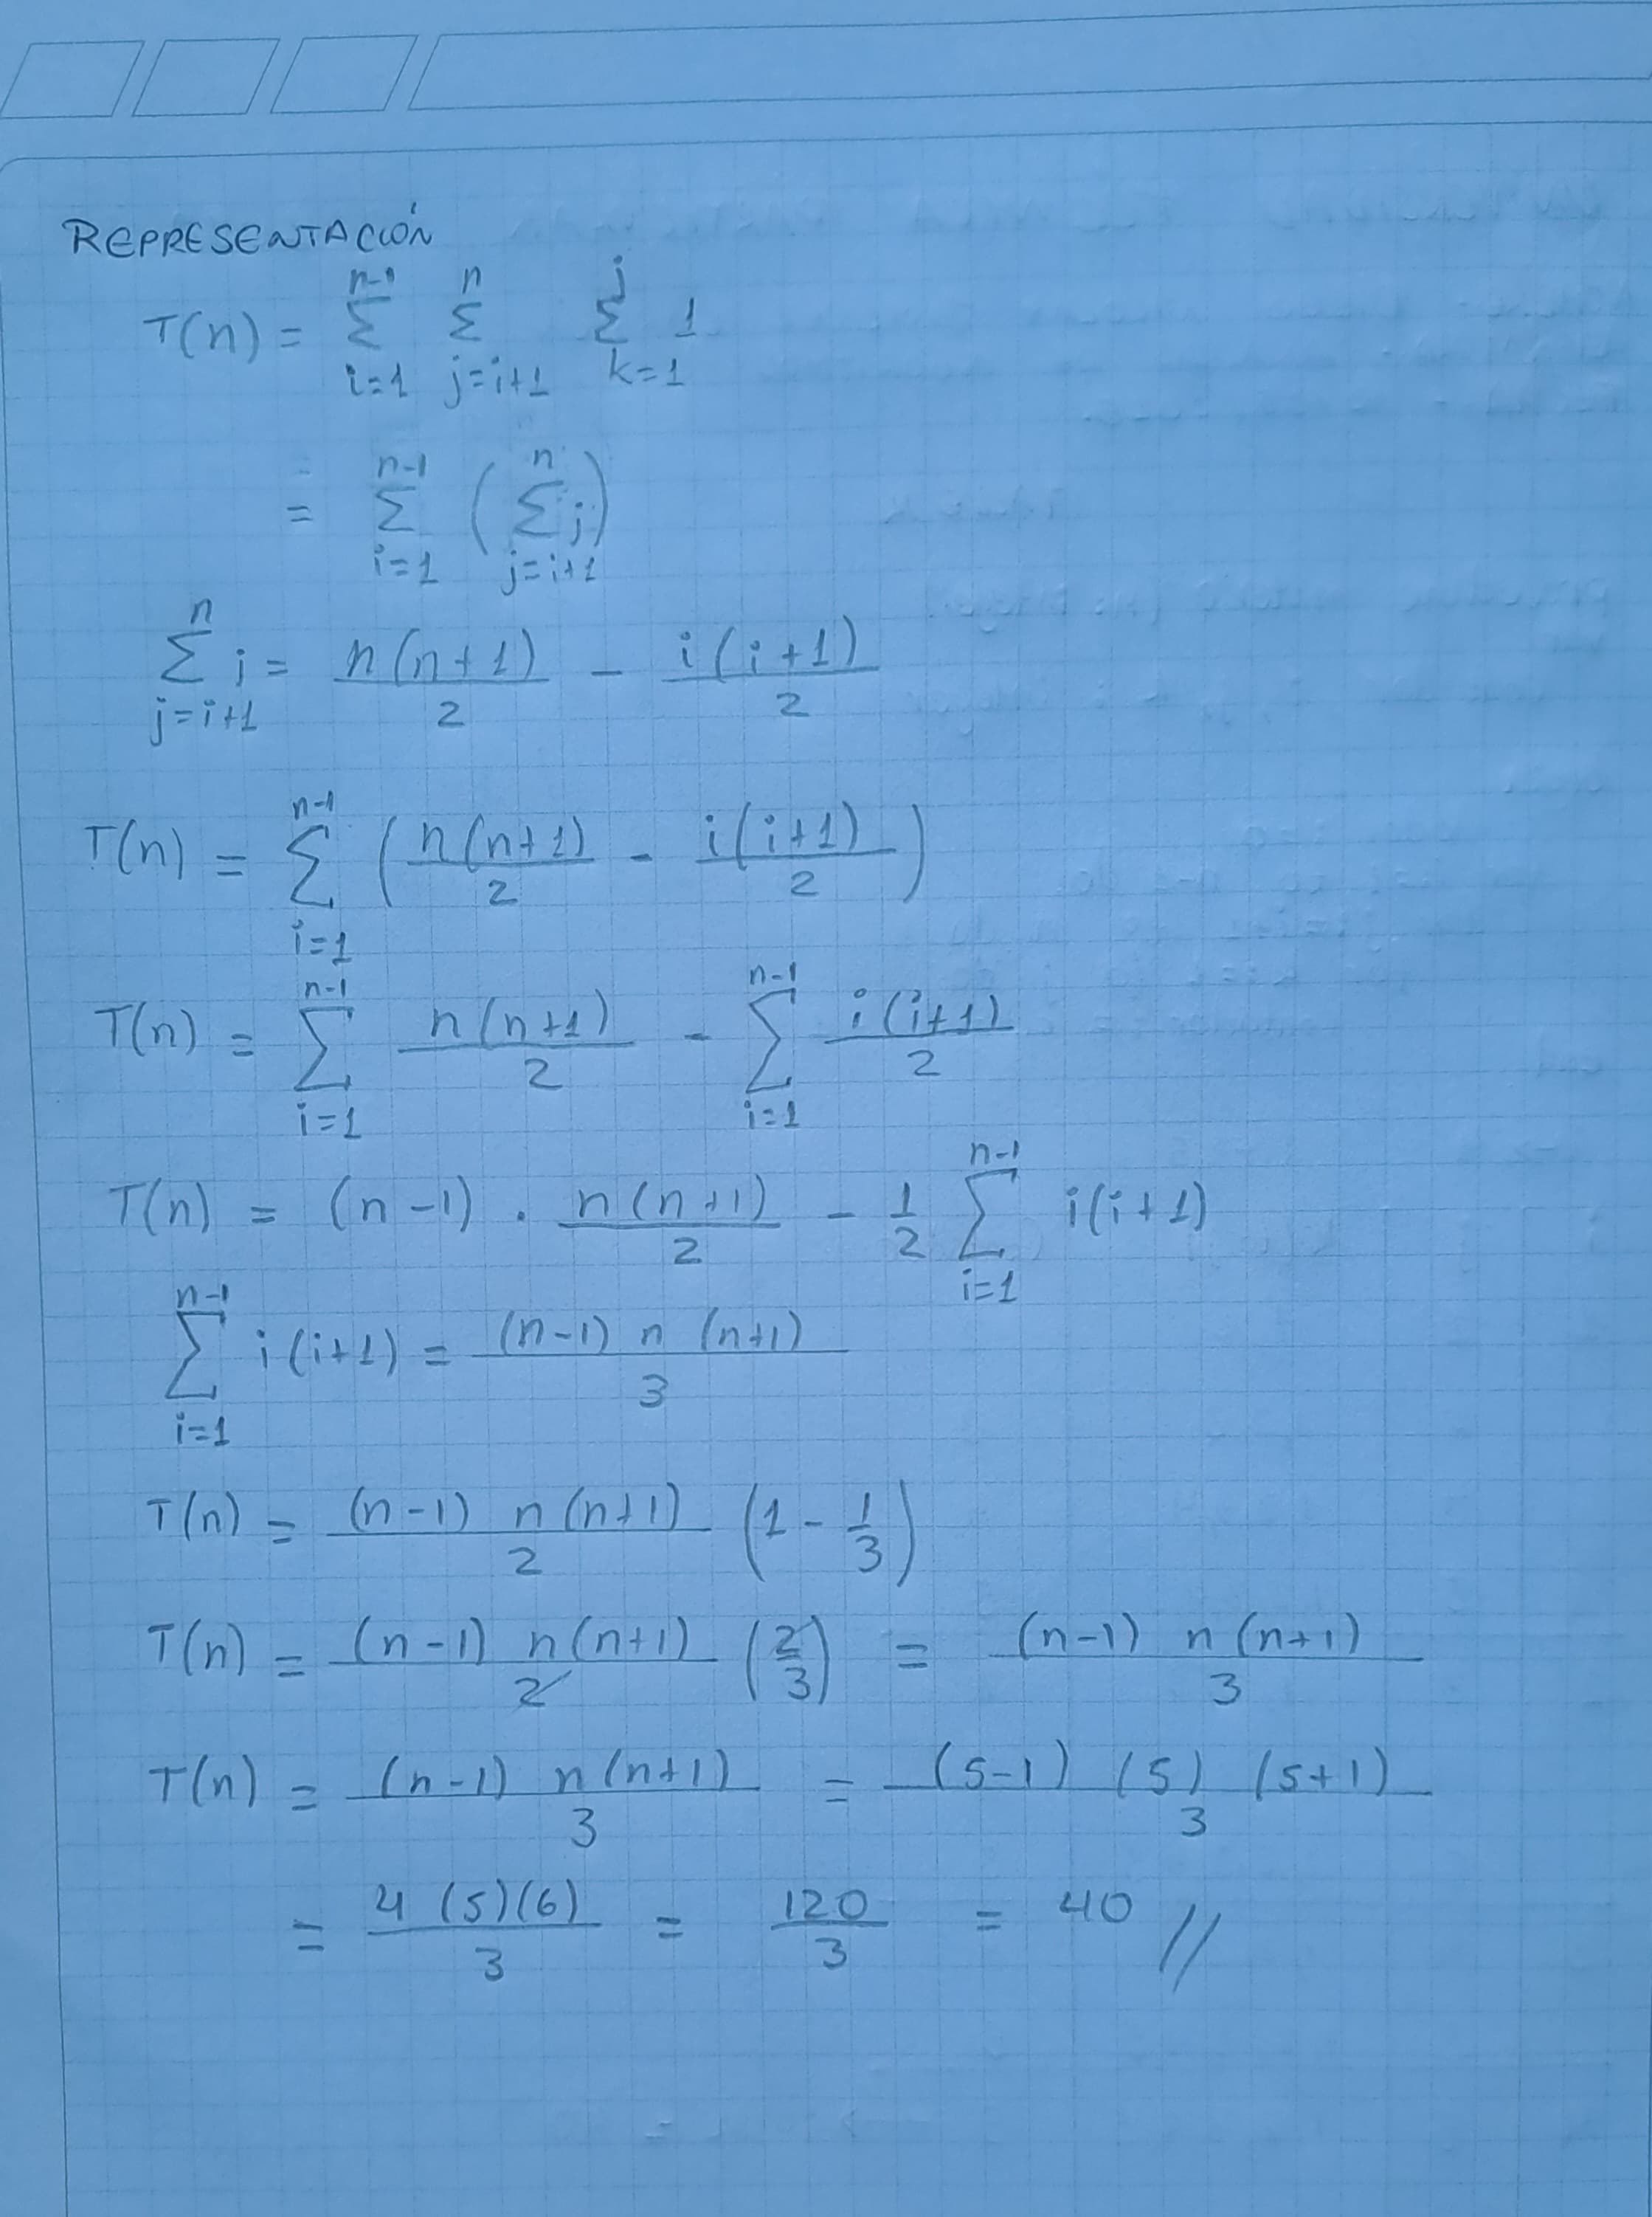 REPRESENTACIÓN
T(n) = \sum_{i=1}^{n-1} \sum_{j=i+1}^{n} \sum_{k=1}^{j} 1
= \sum_{i=1}^{n-1} ( \sum_{j=i+1}^{n} j )
\sum_{j=i+1}^{n} j = \frac{n(n+1)}{2} - \frac{i(i+1)}{2}
T(n) = \sum_{i=1}^{n-1} ( \frac{n(n+1)}{2} - \frac{i(i+1)}{2} )
T(n) = \sum_{i=1}^{n-1} \frac{n(n+1)}{2} - \sum_{i=1}^{n-1} \frac{i(i+1)}{2}
T(n) = (n-1) . \frac{n(n+1)}{2} - \frac{1}{2} \sum_{i=1}^{n-1} i(i+1)
\sum_{i=1}^{n-1} i(i+1) = \frac{(n-1) n (n+1)}{3}
T(n) = \frac{(n-1) n(n+1)}{2} (1 - \frac{1}{3})
T(n) = \frac{(n-1) n(n+1)}{2} (\frac{2}{3}) = \frac{(n-1) n(n+1)}{3}
T(n) = \frac{(n-1) n(n+1)}{3} = \frac{(5-1) (5) (5+1)}{3}
= \frac{4 (5)(6)}{3} = \frac{120}{3} = 40 //